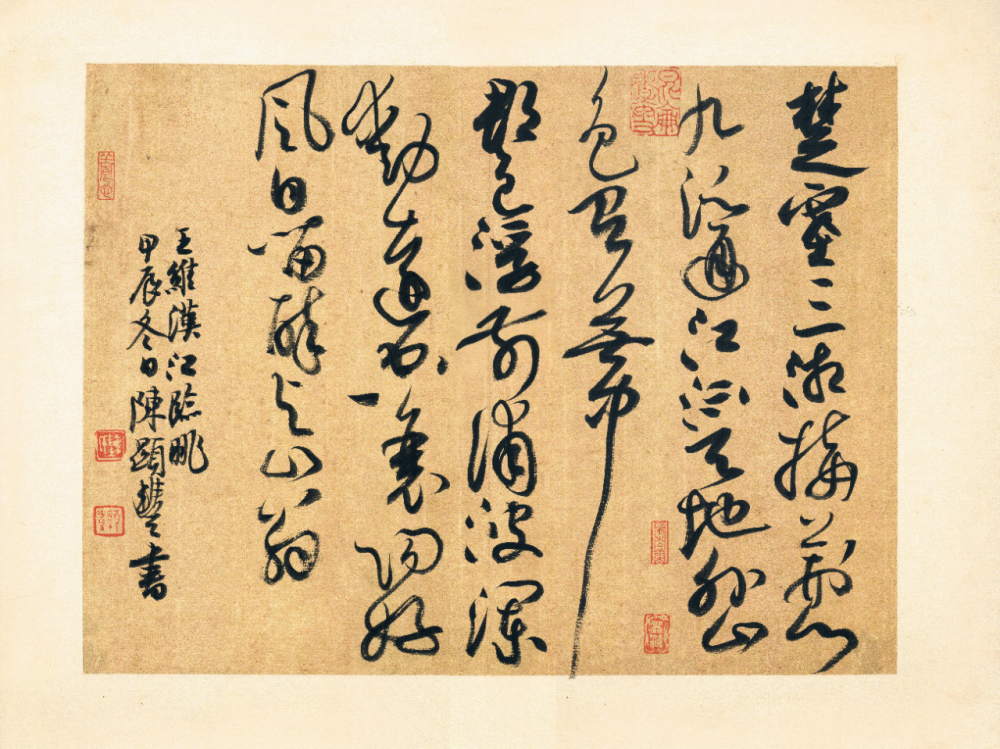 楚塞三湘接荊門
九派通江流天地外山
色有無中
郡邑浮前浦波瀾
動遠空襄陽好
風日留醉與山翁
王維漢江臨眺
甲辰冬日陳顯書